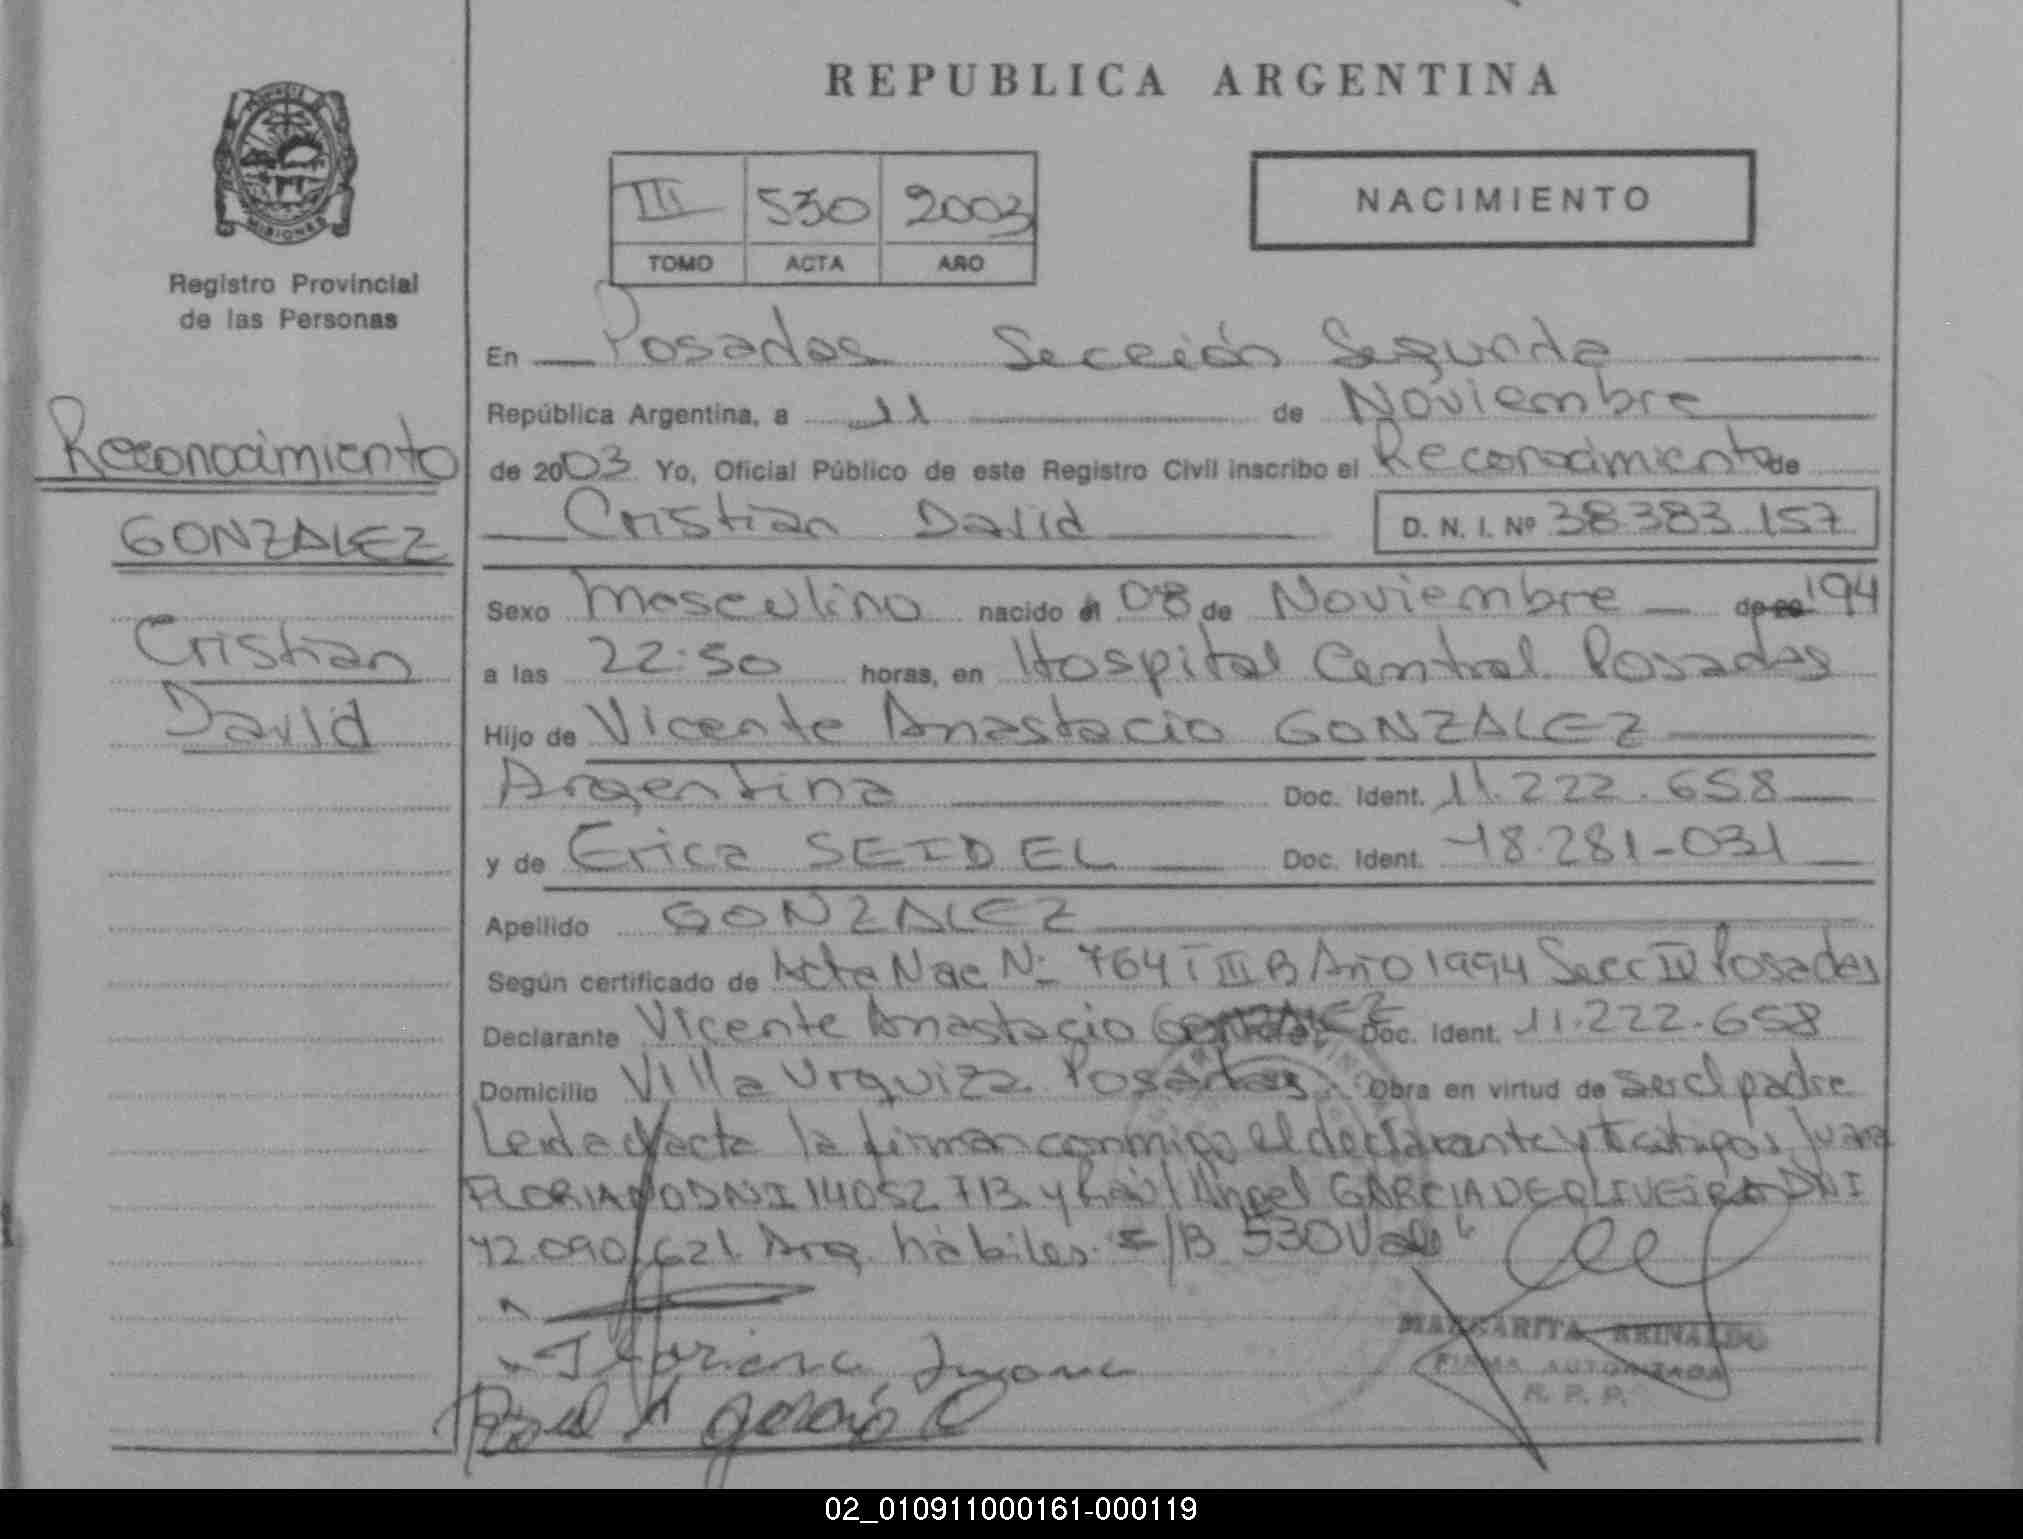 REPUBLICA ARGENTINA
PROVINCIA DE
MISIONES
Registro Provincial
de las Personas
III 530 2003
TOMO ACTA AÑO
NACIMIENTO
En Posadas Sección Segunda
República Argentina, a 11 de Noviembre
de 2003 Yo, Oficial Público de este Registro Civil inscribo el Reconocimiento de
Cristian David D. N. I. Nº 38.383.157
Sexo Masculino nacido el 08 de Noviembre de 20 194
a las 22:50 horas, en Hospital Central Posadas
Hijo de Vicente Anastacio GONZALEZ
Argentina Doc. Ident. 11.222.658
y de Erica SEIDEL Doc. Ident. 18.281-031
Apellido GONZALEZ
Según certificado de Acta Nac Nº 764 T III B Año 1994 Secc IV Posadas
Declarante Vicente Anastacio GONZALEZ Doc. Ident. 11.222.658
Domicilio Villa Urquiza Posadas Obra en virtud de ser el padre
Leida el acta la firman conmigo el declarante y testigos Juana
FLORIANO DNI 14052713 y Raúl Angel GARCIA DE OLIVEIRA DNI
12.090.621. Arg. hábiles. E/B 530 Vale
MARGARITA REINALDO
FIRMA AUTORIZADA
R. P. P.
Floriano Juana
Raul A garcia O
Reconocimiento
GONZALEZ
Cristian
David
02_010911000161-000119